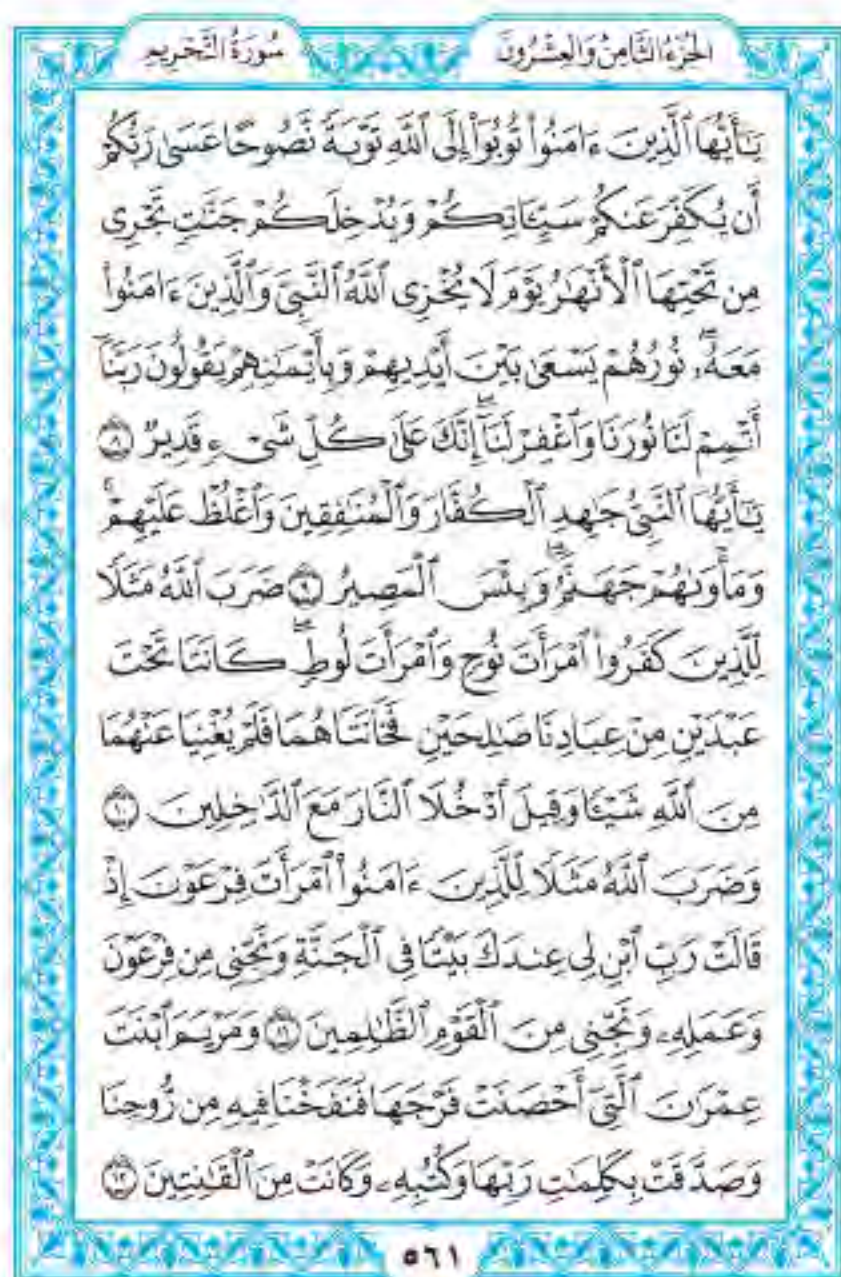 الجُزْءُ الثَّامِنُ وَالعِشْرُونَ
سُورَةُ التَّحْرِيمِ
يَٰٓأَيُّهَا ٱلَّذِينَ ءَامَنُوا۟ تُوبُوٓا۟ إِلَى ٱللَّهِ تَوْبَةً نَّصُوحًا عَسَىٰ رَبُّكُمْ
أَن يُكَفِّرَ عَنكُمْ سَيِّـَٔاتِكُمْ وَيُدْخِلَكُمْ جَنَّٰتٍ تَجْرِى
مِن تَحْتِهَا ٱلْأَنْهَٰرُ يَوْمَ لَا يُخْزِى ٱللَّهُ ٱلنَّبِىَّ وَٱلَّذِينَ ءَامَنُوا۟
مَعَهُۥۖ نُورُهُمْ يَسْعَىٰ بَيْنَ أَيْدِيهِمْ وَبِأَيْمَٰنِهِمْ يَقُولُونَ رَبَّنَآ
أَتْمِمْ لَنَا نُورَنَا وَٱغْفِرْ لَنَآۖ إِنَّكَ عَلَىٰ كُلِّ شَىْءٍ قَدِيرٌ ۝٨
يَٰٓأَيُّهَا ٱلنَّبِىُّ جَٰهِدِ ٱلْكُفَّارَ وَٱلْمُنَٰفِقِينَ وَٱغْلُظْ عَلَيْهِمْۚ
وَمَأْوَىٰهُمْ جَهَنَّمُۖ وَبِئْسَ ٱلْمَصِيرُ ۝٩ ضَرَبَ ٱللَّهُ مَثَلًا
لِّلَّذِينَ كَفَرُوا۟ ٱمْرَأَتَ نُوحٍ وَٱمْرَأَتَ لُوطٍۖ كَانَتَا تَحْتَ
عَبْدَيْنِ مِنْ عِبَادِنَا صَٰلِحَيْنِ فَخَانَتَاهُمَا فَلَمْ يُغْنِيَا عَنْهُمَا
مِنَ ٱللَّهِ شَيْـًٔا وَقِيلَ ٱدْخُلَا ٱلنَّارَ مَعَ ٱلدَّٰخِلِينَ ۝١٠
وَضَرَبَ ٱللَّهُ مَثَلًا لِّلَّذِينَ ءَامَنُوا۟ ٱمْرَأَتَ فِرْعَوْنَ إِذْ
قَالَتْ رَبِّ ٱبْنِ لِى عِندَكَ بَيْتًا فِى ٱلْجَنَّةِ وَنَجِّنِى مِن فِرْعَوْنَ
وَعَمَلِهِۦ وَنَجِّنِى مِنَ ٱلْقَوْمِ ٱلظَّٰلِمِينَ ۝١١ وَمَرْيَمَ ٱبْنَتَ
عِمْرَٰنَ ٱلَّتِىٓ أَحْصَنَتْ فَرْجَهَا فَنَفَخْنَا فِيهِ مِن رُّوحِنَا
وَصَدَّقَتْ بِكَلِمَٰتِ رَبِّهَا وَكُتُبِهِۦ وَكَانَتْ مِنَ ٱلْقَٰنِتِينَ ۝١٢
٥٦١